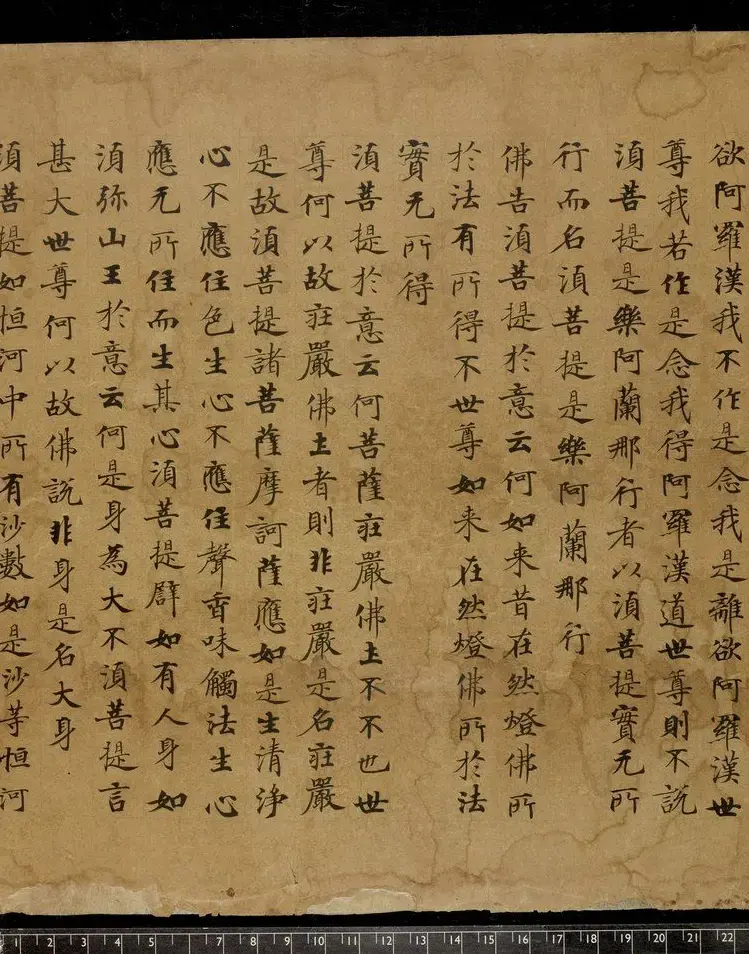 欲阿羅漢我不作是念我是離欲阿羅漢世
尊我若作是念我得阿羅漢道世尊則不說
湏菩提是樂阿蘭那行者以湏菩提實无所
行而名湏菩提是樂阿蘭那行
佛告湏菩提於意云何如来昔在然燈佛所
於法有所得不世尊如来在然燈佛所於法
實无所得
湏菩提於意云何菩薩莊嚴佛土不不也世
尊何以故莊嚴佛土者則非莊嚴是名莊嚴
是故湏菩提諸菩薩摩訶薩應如是生清淨
心不應住色生心不應住聲香味觸法生心
應无所住而生其心湏菩提辟如有人身如
湏弥山王於意云何是身為大不湏菩提言
甚大世尊何以故佛說非身是名大身
湏菩提如恒河中所有沙數如是沙等恒河
1 2 3 4 5 6 7 8 9 10 11 12 13 14 15 16 17 18 19 20 21 22